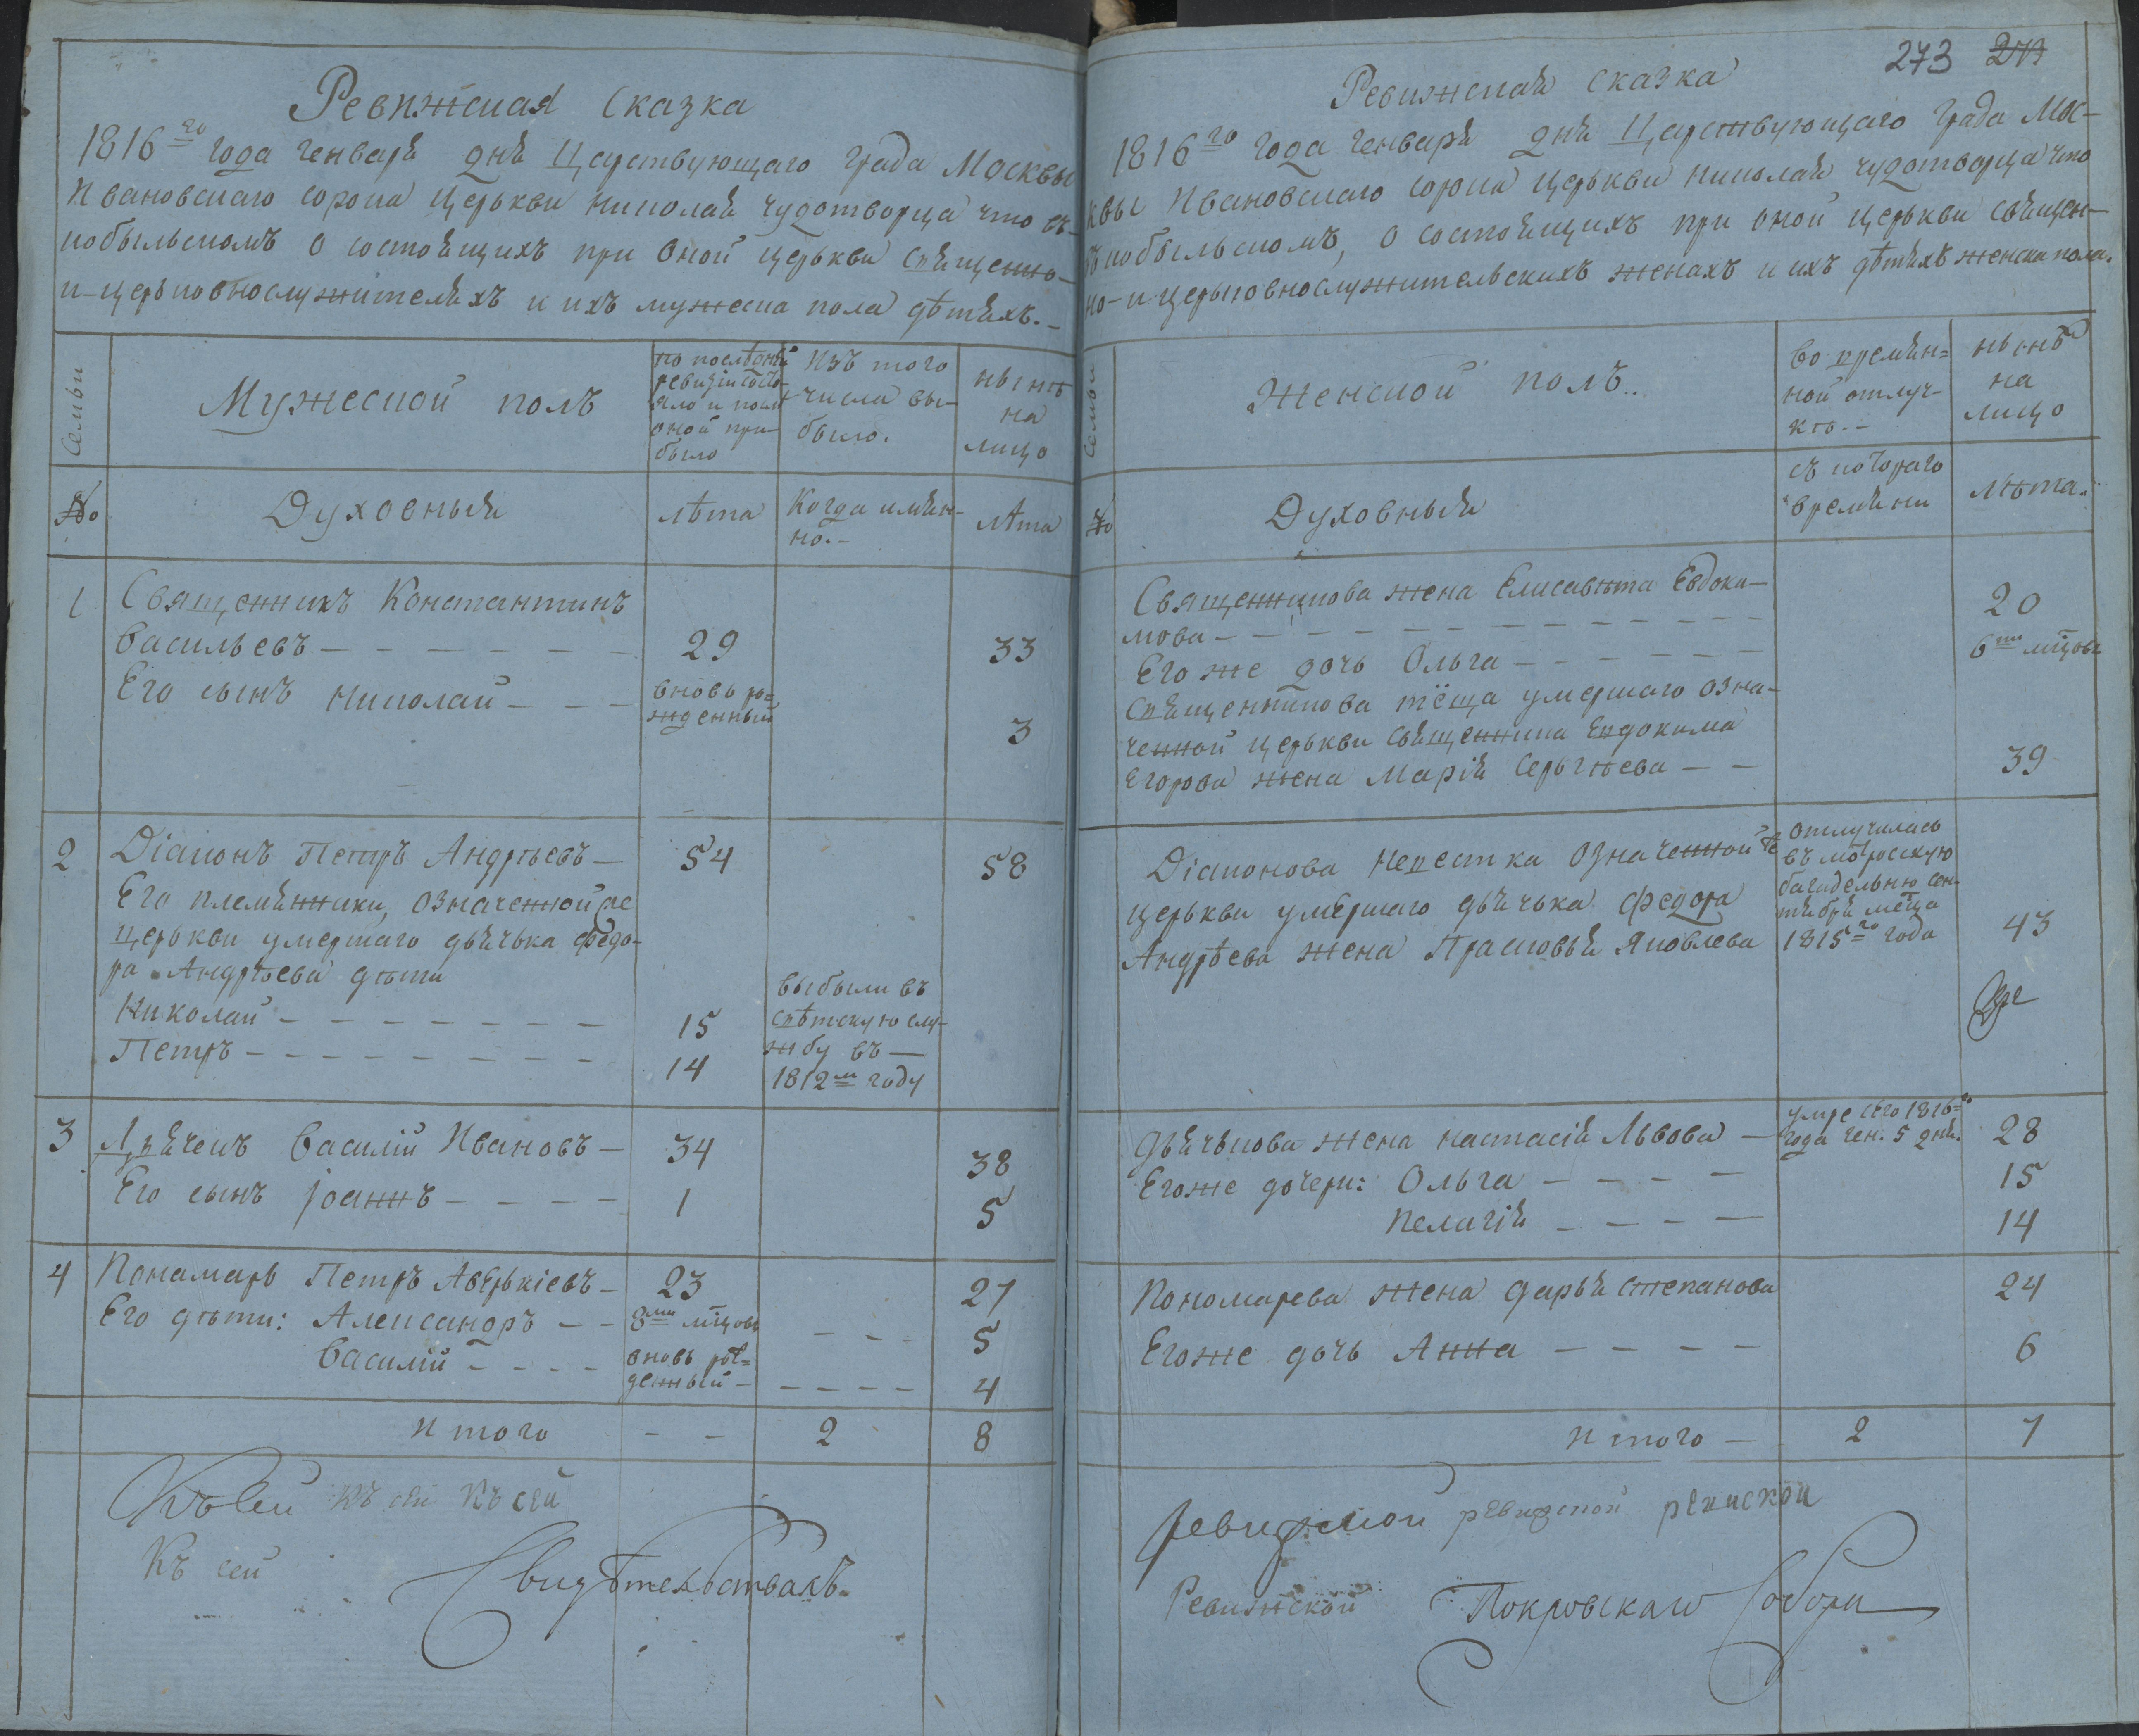 Ревижская сказка
1816го года генваря дня Царствующаго града Москвы
Ивановскаго сорока церькви Николая чудотворца что въ
кобыльскомъ о состоящихъ при оной церькви священно-
и-церьковнослужителяхъ и ихъ мужеска пола дѣтяхъ.-
Семьи
Мужеской полъ
по послѣдней
ревизіи состо-
яло и послѣ
оной при-
было
Изъ того
числа вы-
было.
нынѣ
на
лицо
№
Духовныя
лѣта
Когда имян-
но.-
лѣта
1
Священникъ Константинъ
Васильевъ - - - - - - -
29
33
Его сынъ Николай - - -
вновь ро-
жденный
3
2
Діаконъ Петръ Андрѣевъ -
54
58
Его племянники, означенной же
церькви умершаго дьячька Федо-
ра Андрѣева дѣти
Николай - - - - - - -
15
Петръ - - - - - - - -
14
выбыли въ
свѣтскую слу-
жбу въ -
1812м году
3
Дьячекъ Василій Ивановъ -
34
38
Его сынъ Іоаннъ - - - -
1
5
4
Пономарь Петръ Аверькіевъ -
23
27
Его дѣти: Александръ - -
8ми мцовъ
- - -
5
Василій - - - -
вновь рож-
денный -
- - - -
4
Итого
- -
2
8
Къ сей къ сей Къ сей
Къ сей
Свидѣтельствалъ
273 273
Ревижская сказка
1816го года генваря дня Царствующаго града Мос-
квы Ивановскаго сорока церькви Николая чудотворца что
въ кобыльскомъ, о состоящихъ при оной церькви священ-
но-и церьковнослужительскихъ женахъ и ихъ дѣтяхъ женска пола.
Семьи
Женской полъ..
Во времян-
ной отлуч-
кѣ.-
нынѣ
на
лицо
№
Духовныя
съ котораго
времяни
лѣта.
Священникова жена Елисавѣта Евдоки-
мова - - - - - - - - - - - -
20
Его же дочь Ольга - - - - - -
6ти мцовъ
Священникова тёща умершаго озна-
ченной церькви священника Евдокима
Егорова жена Марія Серьгѣева - -
39
Діаконова невестка означенной же
церькви умершаго дьячька Федора
Андрѣева жена Прасковья Яковлева
отлучилась
въ матросскую
багадельню сен-
тября мсца
1815го года
43
Дьячькова жена Настасія Львова -
умре сего 1816го
года ген. 5 дня.
28
Егоже дочери: Ольга - - - -
15
Пелагія - - - -
14
Пономарева жена Дарья Степанова
24
Егоже дочь Анна - - - -
6
Итого -
2
7
ревизской ревизской ревиской
Ревижской Покровскаго Собора